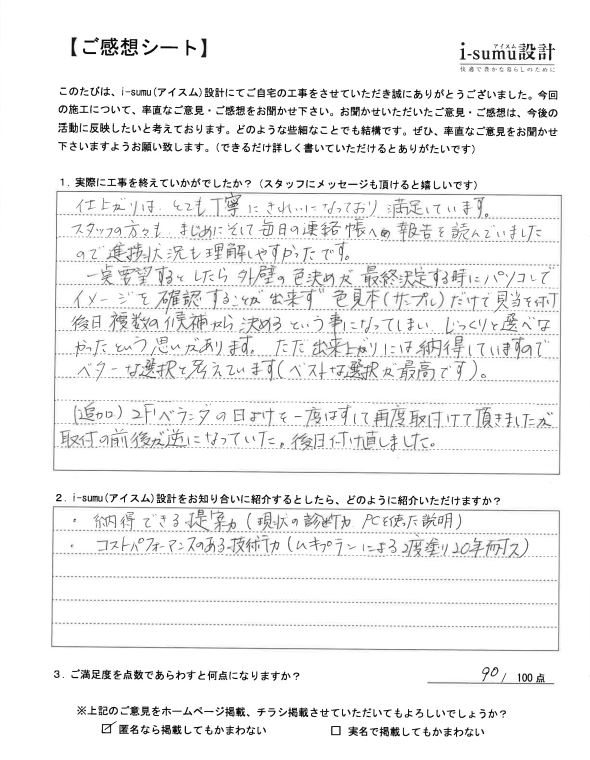 【ご感想シート】
アイスム
i-sumu設計
快適で豊かな暮らしのために
このたびは、i-sumu(アイスム)設計にてご自宅の工事をさせていただき誠にありがとうございました。今回
の施工について、率直なご意見・ご感想をお聞かせ下さい。お聞かせいただいたご意見・ご感想は、今後の
活動に反映したいと考えております。どのような些細なことでも結構です。ぜひ、率直なご意見をお聞かせ
下さいますようお願い致します。(できるだけ詳しく書いていただけるとありがたいです)
1. 実際に工事を終えていかがでしたか？(スタッフにメッセージも頂けると嬉しいです)
仕上がりは、とても丁寧にきれいになっており満足しています。
スタッフの方々も まじめにそして毎日の連絡帳への報告を読んでいました
ので進捗状況も理解しやすかったです。
一点要望するとしたら 外壁の色決めが 最終決定する時にパソコンで
イメージを確認することが出来ず 色見本(サンプル)だけで見当を付け
後日複数の候補から決めるという事になってしまい じっくりと選べな
かったという思いがあります。ただ出来上がりには納得していますので
ベターな選択と考えています(ベストな選択が最高です)。
(追加) 2Fベランダの日よけを一度はずして再度取付けて頂きましたが
取付の前後が逆になっていた。後日付け直しました。
2. i-sumu(アイスム)設計をお知り合いに紹介するとしたら、どのように紹介いただけますか？
・ 納得できる提案力 (現状の診断力 PCを使った説明)
・ コストパフォーマンスのある技術力 (ムキプランによる2度塗り20年耐久)
3. ご満足度を点数であらわすと何点になりますか？
90/ 100点
※上記のご意見をホームページ掲載、チラシ掲載させていただいてもよろしいでしょうか？
☑ 匿名なら掲載してもかまわない □ 実名で掲載してもかまわない